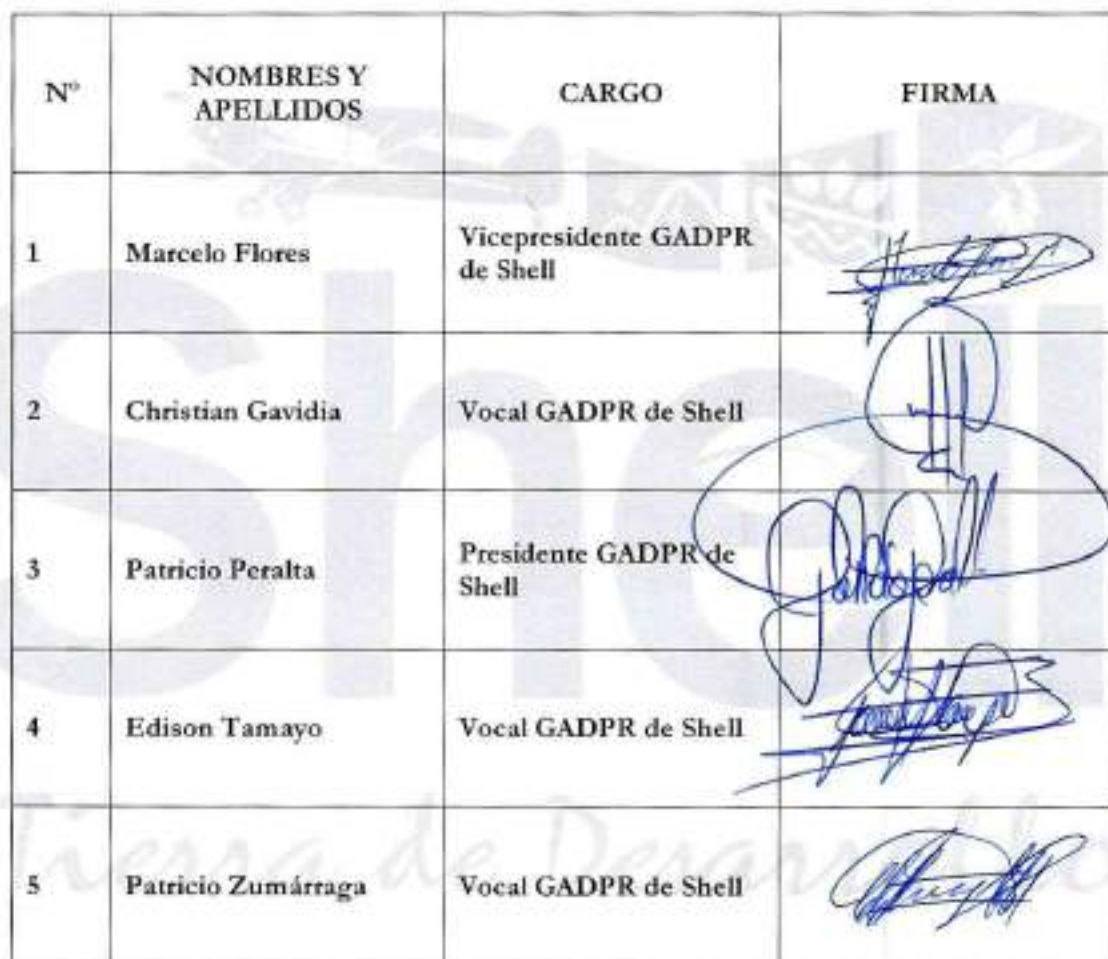 N°
NOMBRES Y
APELLIDOS
CARGO
FIRMA
1
Marcelo Flores
Vicepresidente GADPR
de Shell
2
Christian Gavidia
Vocal GADPR de Shell
3
Patricio Peralta
Presidente GADPR de
Shell
4
Edison Tamayo
Vocal GADPR de Shell
5
Patricio Zumárraga
Vocal GADPR de Shell
Shell
Tierra de Desarrollo